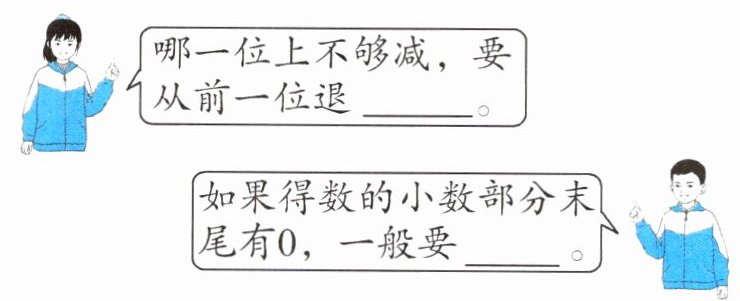 哪一位上不够减，要
从前一位退______。
如果得数的小数部分末
尾有0，一般要______。